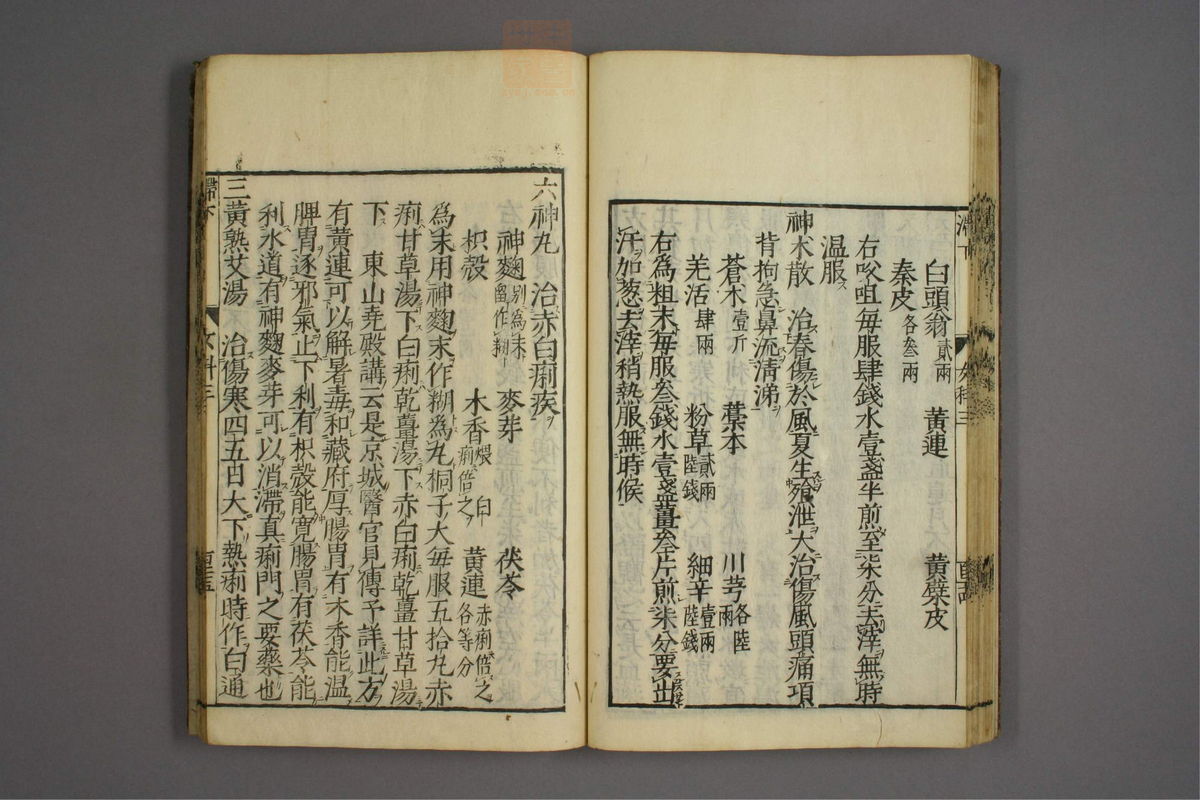 滯下
女科三
白頭翁貳兩 黃連 黃蘗皮
秦皮各叄兩
右㕮咀每服肆錢水壹盞半煎至柒分去滓無時
溫服
神术散 治春傷於風夏生飧泄大治傷風頭痛項
背拘急鼻流清涕
蒼木壹斤 藁本 川芎各陸兩
羌活肆兩 粉草貳兩陸錢 細辛壹兩陸錢
右爲粗末每服叄錢水壹盞薑叄片煎柒分要出
汗加葱去滓稍熱服無時候
六神丸 治赤白痢疾
神麴別爲末留作糊 麥芽 茯苓
枳殼 木香煨白痢倍之 黃連赤痢倍之各等分
爲末用神麴末作糊爲丸桐子大每服五拾丸赤
痢甘草湯下白痢乾薑湯下赤白痢乾薑甘草湯
下 東山堯殿講云是京城醫官見傳予詳此方
有黃連可以解暑毒和藏府厚腸胃有木香能溫
脾胃逐邪氣止下利有枳殼能寬腸胃有茯苓能
利水道有神麴麥芽可以消滯真痢門之要藥也
三黃熟艾湯 治傷寒四五日大下熱痢時作白通
帶下
女科三